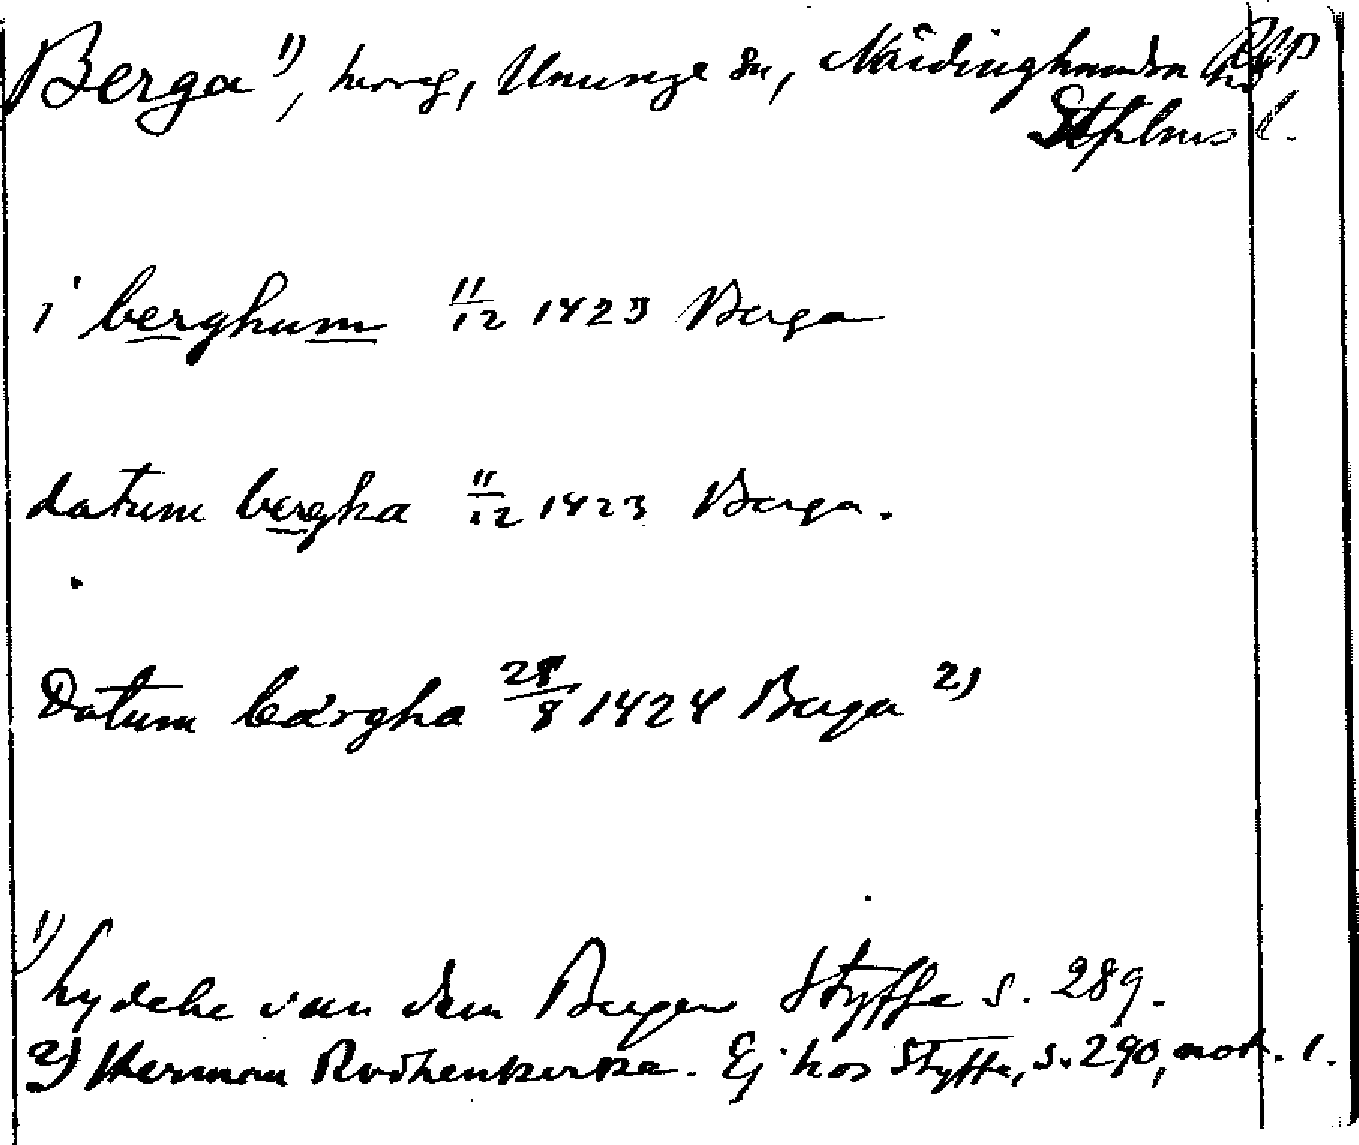 Berga 1), herrg, Ununge sn, Närdinghundra
Sthlms l.
i berghum 11/12 1423 Berga
datum bergha 11/12 1423 Berga.
Datum bärgha 28/8 1424 Berga 2)
1) Lydeke van dem Bergen Styffe s. 289.
2) Herman Rodhenkerka. Ej hos Styffe, s. 290, not. 1.